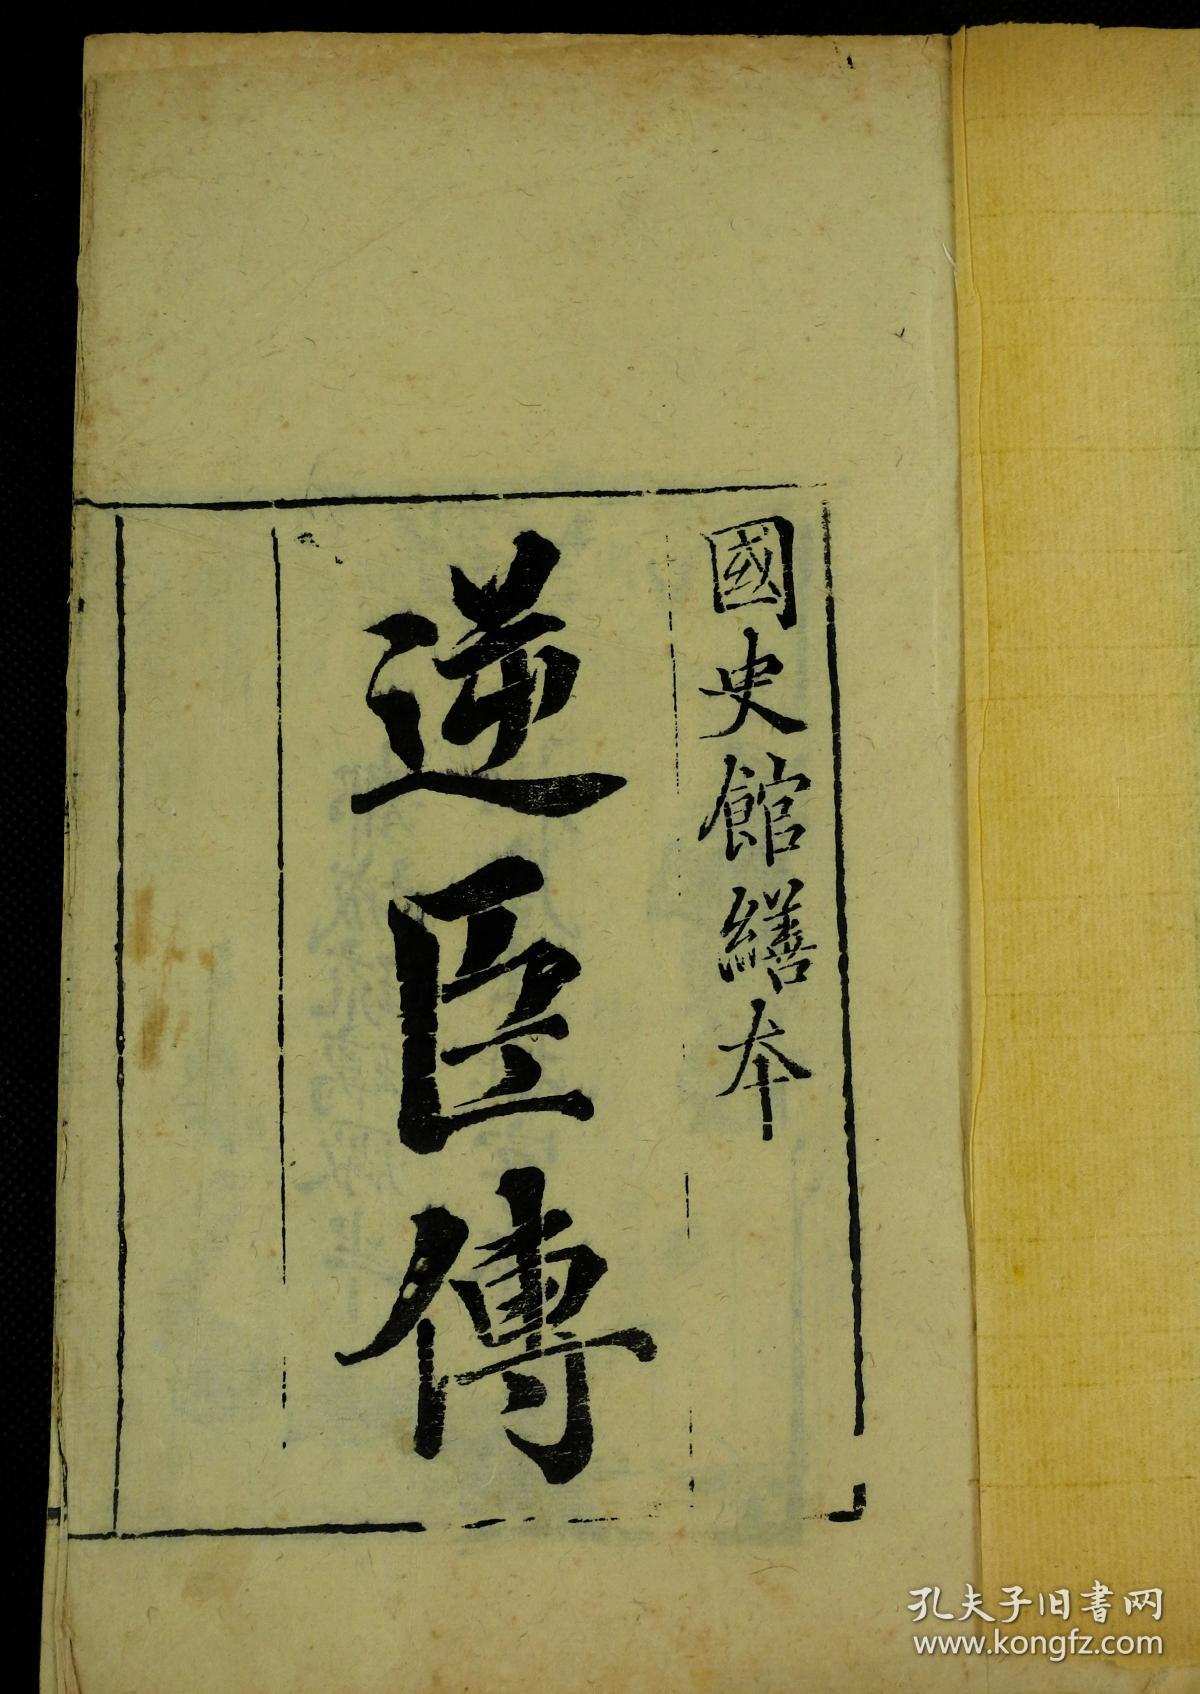 國史館繕本
逆臣傳
孔夫子旧書网
www.kongfz.com